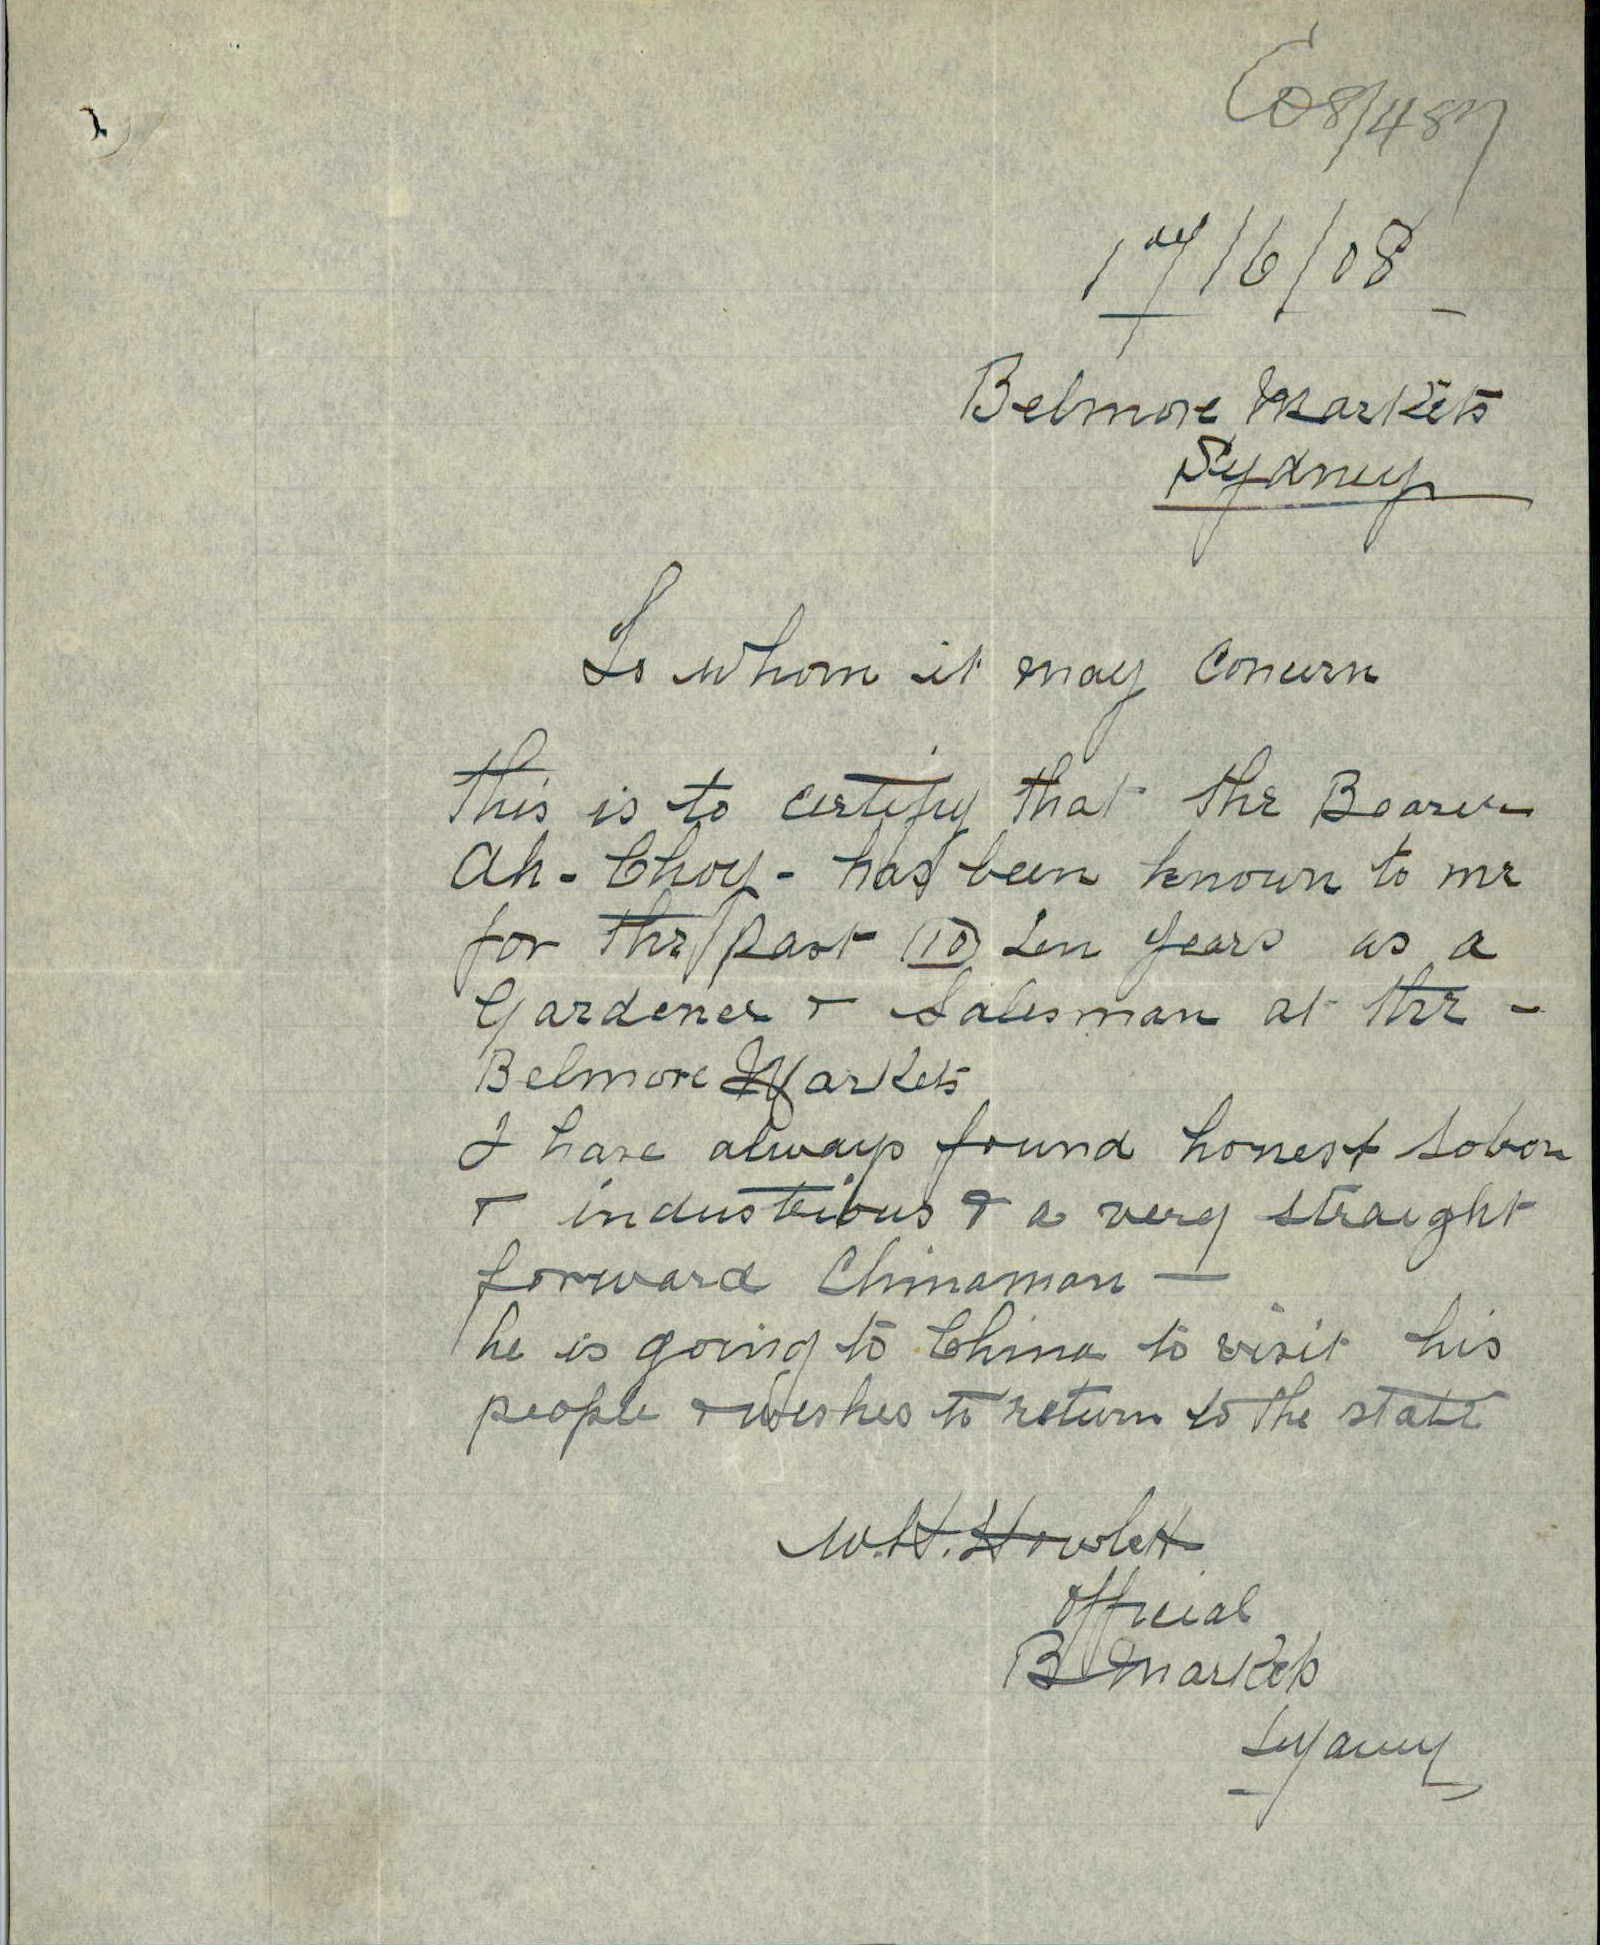 C08/4887
17/6/08
Belmore Markets
Sydney
To whom it may concern
This is to certify that the Bearer
Ah-Choy- has been known to me
for the past (10) ten years as a
Gardener & Salesman at the -
Belmore Markets
I have always found honest sober
& industrious & a very straight
forward Chinaman —
he is going to China to visit his
people & wishes to return to the state
W.H. Howlett
Official
B Markets
Sydney